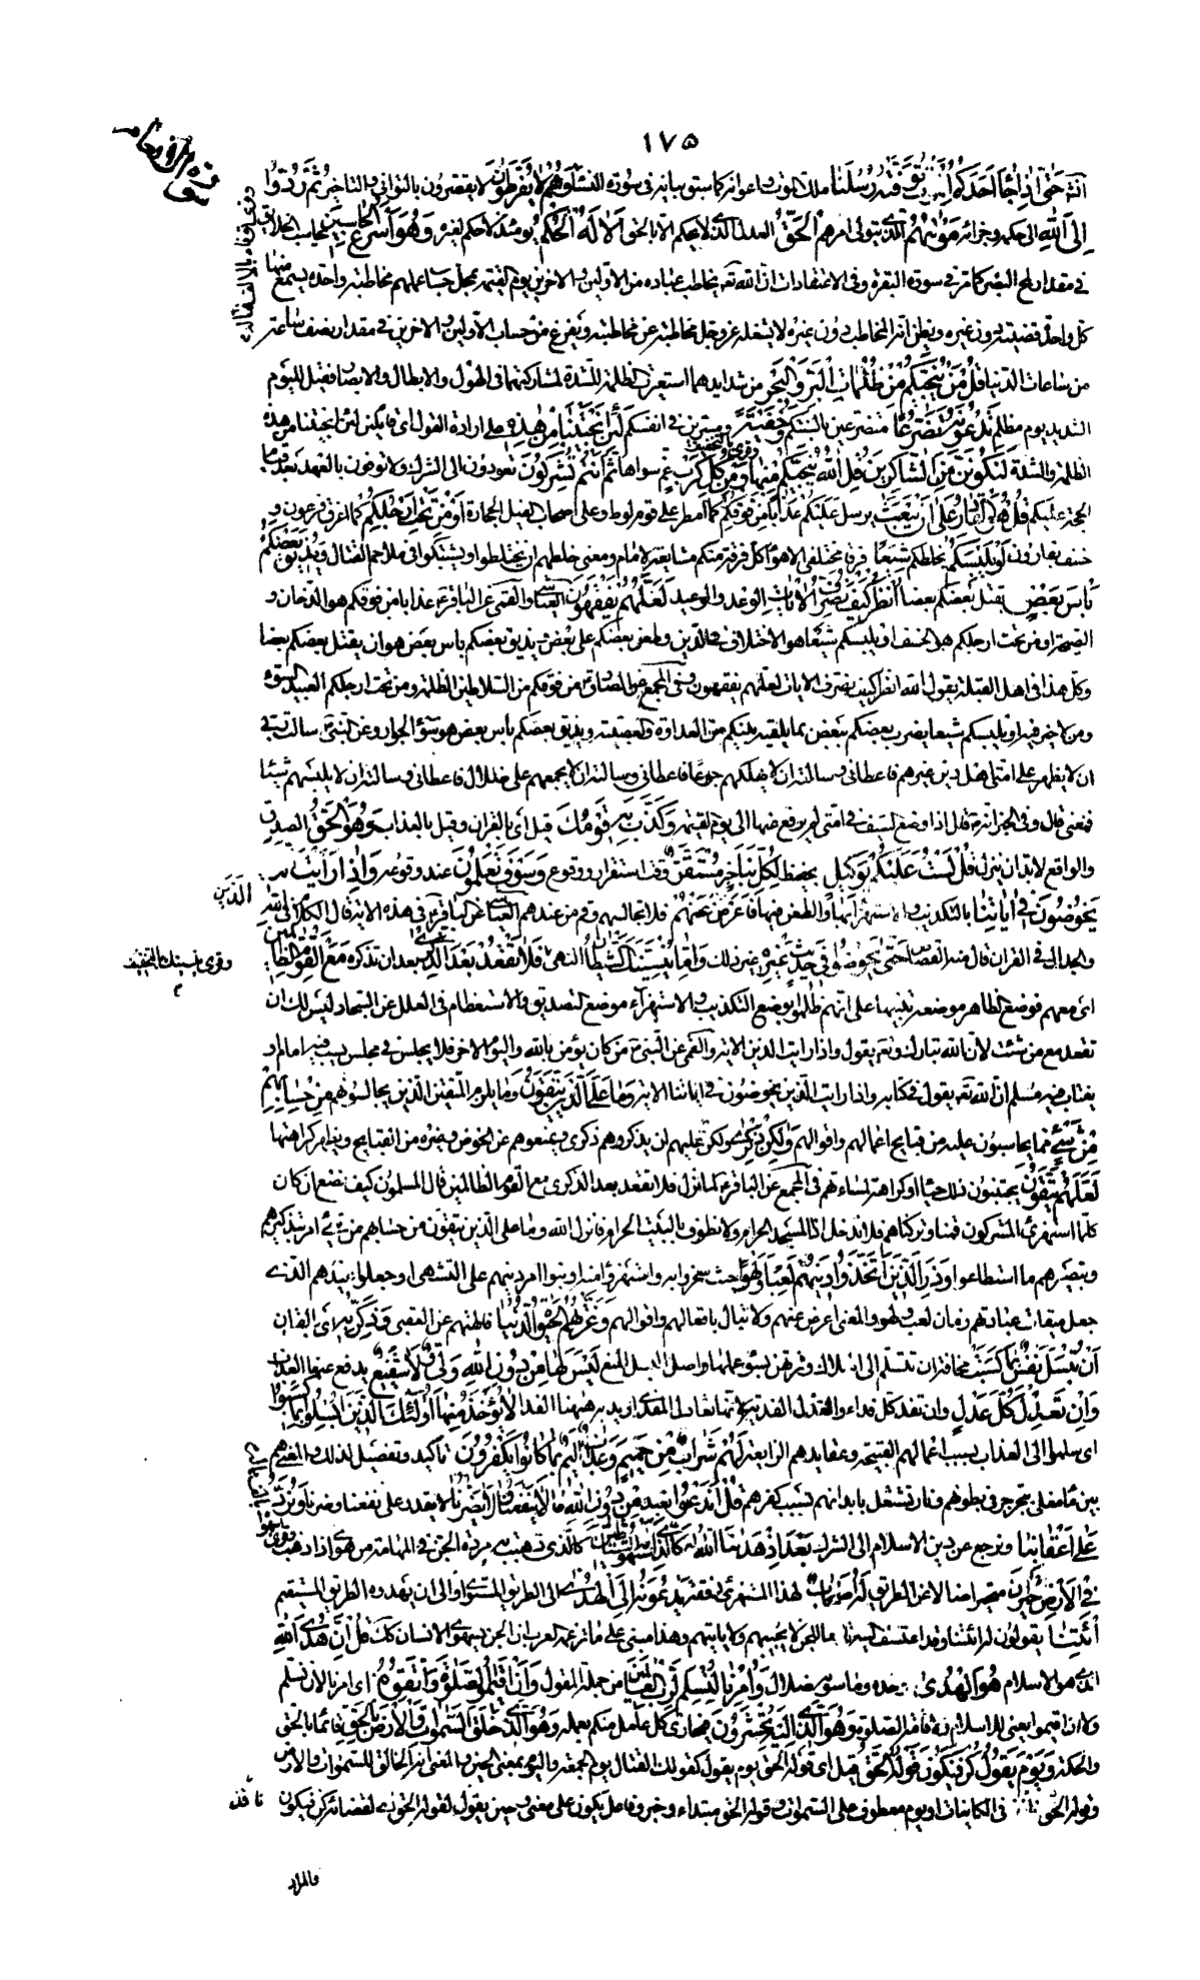 ١٧٥
سورة الانعام
انه حَتّى اِذا جٰاءَ اَحَدَكُمُ الْمَوْتُ تَوَفَّتْهُ رُسُلُنٰا ملك الموت واعوانه كما سبق بيانه فى سورة النساء وَهُمْ لا يُفَرِّطُونَ لا يقصرون بالتوانى والتاخير ثُمَّ رُدُّوا
اِلَى اللهِ الى حكمه وجزائه مَوْلٰيهُمُ الذى يتولى امرهم الْحَقِّ العدل الذى لا يحكم الا بالحق اَلا لَهُ الْحُكْمُ يومئذ لا حكم لغيره وَهُوَ اَسْرَعُ الْحٰاسِبينَ يحاسب الخلايق
فى مقدار لمح البصر كما مر فى سورة البقرة وفى الاعتقادات ان الله تع يخاطب عباده من الاولين والاخرين يوم القيمة بمجمل حساب عملهم مخاطبة واحدة يسمع منها
كل واحد قضيته دون غيره ويظن انه المخاطب دون غيره لا يشغله عز وجل مخاطبة عن مخاطبة ويفرغ من حساب الاولين والاخرين فى مقدار نصف ساعة
من ساعات الدنيا قُلْ مَنْ يُنَجّيكُمْ مِنْ ظُلُمٰاتِ الْبَرِّ وَالْبَحْرِ من شدايدهما استعيرت الظلمة للشدة لمشاركتهما فى الهول وابطال الابصار فقيل لليوم
الشديد يوم مظلم تَدْعُونَهُ تَضَرُّعًا متضرعين بالسنتكم وَخُفْيَةً ومسرين فى انفسكم لَئِنْ اَنْجَيْتَنٰا مِنْ هٰذِهِ على ارادة القول اى قائلين لئن انجيتنا من هذه
الظلمة والشدة لَنَكُونَنَّ مِنَ الشّاكِرينَ قُلِ اللهُ يُنَجّيكُمْ مِنْهٰا وقرئ بالتخفيف وَمِنْ كُلِّ كَرْبٍ غم سواها ثُمَّ اَنْتُمْ تُشْرِكُونَ تعودون الى الشرك ولا توفون بالعهد بعد قيام
الحجة عليكم قُلْ هُوَ الْقٰادِرُ عَلٰى اَنْ يَبْعَثَ يرسل عَلَيْكُمْ عَذٰابًا مِنْ فَوْقِكُمْ كما امطر على قوم لوط وعلى اصحاب الفيل الحجارة اَوْ مِنْ تَحْتِ اَرْجُلِكُمْ كما اغرق فرعون و
خسف بقارون اَوْ يَلْبِسَكُمْ يخلطكم شِيَعًا فرقا مختلفى الاهواء كل فرقة منكم مشايعة لامام ومعنى خلطهم ان يختلطوا ويشتبكوا فى ملاحم القتال وَيُذيقَ بَعْضَكُمْ
بَأْسَ بَعْضٍ يقتل بعضكم بعضا اُنْظُرْ كَيْفَ نُصَرِّفُ الْاٰيٰاتِ بالوعد والوعيد لَعَلَّهُمْ يَفْقَهُونَ العياشى والقمى عن الباقر ع عذابا من فوقكم هو الدخان و
الصيحة او من تحت ارجلكم هو الخسف او يلبسكم شيعا هو الاختلاف فى الدين وطعن بعضكم على بعض ويذيق بعضكم باس بعض هو ان يقتل بعضكم بعضا
وكل هذا فى اهل القبلة يقول الله انظر كيف نصرف الايات لعلهم يفقهون وفى المجمع عن الصادق ع من فوقكم من السلاطين الظلمة ومن تحت ارجلكم العبيد السوء
ومن لا خير فيه او يلبسكم شيعا يضرب بعضكم ببعض بما يلقيه بينكم من العداوة والعصبية ويذيق بعضكم باس بعض هو سوء الجوار وعن النبى ص سالت ربى
ان لا يظهر على امتى اهل دين غيرهم فاعطانى وسالته ان لا يهلكهم جوعا فاعطانى وسالته ان لا يجمعهم على ضلال فاعطانى وسالته ان لا يلبسهم شيعا
فمنعنى قال وفى الخبر انه ص قال اذا وضع السيف فى امتى لم يرفع عنها الى يوم القيمة وَكَذَّبَ بِهِ قَوْمُكَ قيل اى بالقران وقيل بالعذاب وَهُوَ الْحَقُّ الصدق
والواقع لا بد ان ينزل قُلْ لَسْتُ عَلَيْكُمْ بِوَكيلٍ بحفيظ لِكُلِّ نَبَاٍ خبر مُسْتَقَرٌّ وقت استقرار ووقوع وَسَوْفَ تَعْلَمُونَ عند وقوعه وَاِذا رَاَيْتَ
الَّذينَ
يَخُوضُونَ فى اٰيٰاتِنٰا بالتكذيب والاستهزاء بها والطعن فيها فَاَعْرِضْ عَنْهُمْ فلا تجالسهم وقم من عندهم العياشى عن الباقر ع فى هذه الاية قال الكلام فى الله
والجدال فى القران قال منه القصاص حَتّى يَخُوضُوا فى حَديثٍ غَيْرِهِ غير ذلك وَاِمّا يُنْسِيَنَّكَ الشَّيْطٰانُ النهى فَلا تَقْعُدْ بَعْدَ الذِّكْرٰى بعد ان تذكره مَعَ الْقَوْمِ الظّالِمينَ
وقرئ ينسينك بالتشديد
اى معهم فوضع الظاهر موضعه تنبيها على انهم ظلموا بوضع التكذيب والاستهزاء موضع التصديق والاستعظام فى العلل عن السجاد ليس لك ان
تقعد مع من شئت لان الله تبارك وتع يقول واذا رايت الذين الاية والقمى عن النبى ص من كان يؤمن بالله واليوم الاخر فلا يجلس فى مجلس يسب فيه امام او
يغتاب فيه مسلم ان الله تع يقول فى كتابه واذا رايت الذين يخوضون فى اياتنا الاية وَمٰا عَلَى الَّذينَ يَتَّقُونَ وما يلزم المتقين الذين يجالسونهم مِنْ حِسٰابِهِمْ
مِنْ شَىْءٍ مما يحاسبون عليه من قبايح اعمالهم واقوالهم وَلٰكِنْ ذِكْرٰى ولكن عليهم ان يذكروهم ذكرى ويمنعوهم عن الخوض وغيره من القبايح ويظهر كراهتها
لَعَلَّهُمْ يَتَّقُونَ يجتنبون ذلك حياء او كراهة لمساءتهم فى المجمع عن الباقر ع لما نزل فلا تقعد بعد الذكرى مع القوم الظالمين قال المسلمون كيف نصنع ان كان
كلما استهزئ المشركون قمنا وتركناهم فلا ندخل اذا المسجد الحرام ولا نطوف بالبيت الحرام فانزل الله وما على الذين يتقون من حسابهم من شىء امر بتذكيرهم
وتبصيرهم ما استطاعوا وَذَرِ الَّذينَ اتَّخَذُوا دينَهُمْ لَعِبًا وَلَهْوًا حيث سخروا به واستهزؤا منه او بنوا امر دينهم على التشهى او جعلوا دينهم الذى
جعل ميقات عبادتهم زمان لعب ولهو والمعنى اعرض عنهم ولا تبال بافعالهم واقوالهم وَغَرَّتْهُمُ الْحَيٰوةُ الدُّنْيٰا فالهتهم عن العقبى وَذَكِّرْ بِهِ اى بالقران
اَنْ تُبْسَلَ نَفْسٌ بِمٰا كَسَبَتْ مخافة ان تسلم الى الهلاك وترتهن بسوء عملها واصل البسل المنع لَيْسَ لَهٰا مِنْ دُونِ اللهِ وَلِىٌّ وَلا شَفيعٌ يدفع عنها العذاب
وَاِنْ تَعْدِلْ كُلَّ عَدْلٍ وان تفد كل فداء والعدل الفدية لانها تعادل المفدى اريد به هيهنا الفداء لا يُؤْخَذْ مِنْهٰا اُولٰئِكَ الَّذينَ اُبْسِلُوا بِمٰا كَسَبُوا
اى سلموا الى العذاب بسبب اعمالهم القبيحة وعقايدهم الزايغة لَهُمْ شَرٰابٌ مِنْ حَميمٍ وَعَذٰابٌ اَليمٌ بِمٰا كٰانُوا يَكْفُرُونَ تاكيد وتفصيل لذلك والمعنى هم
بين ماء مغلى يتجرجر فى بطونهم ونار تشتعل بابدانهم بسبب كفرهم قُلْ اَنَدْعُوا انعبد مِنْ دُونِ اللهِ مٰا لا يَنْفَعُنٰا وَلا يَضُرُّنٰا لا يقدر على نفعنا وضرنا وَنُرَدُّ
عَلٰى اَعْقٰابِنٰا ونرجع عن دين الاسلام الى الشرك بَعْدَ اِذْ هَدٰينَا اللهُ كَالَّذِى اسْتَهْوَتْهُ الشَّيٰاطينُ كالذى ذهبت به مردة الجن فى المهامة من هوى اذا ذهب
فِى الْاَرْضِ حَيْرٰانَ متحيرا ضالا عن الطريق لَهُ اَصْحٰابٌ لهذا المستهوى رفقة يَدْعُونَهُ اِلَى الْهُدَى الى الطريق المستوى او الى ان يهدوه الطريق المستقيم
ائْتِنٰا يقولون له ائتنا وقد اعتسف التيه تابعا للجن لا يجيبهم ولا ياتيهم وهذا مبنى على ما تزعمه العرب ان الجن تستهوى الانسان كذلك قُلْ اِنَّ هُدَى اللهِ
الذى هو الاسلام هُوَ الْهُدٰى وحده وما سواه ضلال وَاُمِرْنٰا لِنُسْلِمَ لِرَبِّ الْعٰالَمينَ من جملة المقول وَاَنْ اَقيمُوا الصَّلٰوةَ وَاتَّقُوهُ اى امرنا لان نسلم
ولان اقيموا يعنى للاسلام ولاقامة الصلوة وَهُوَ الَّذى اِلَيْهِ تُحْشَرُونَ فيجازى كل عامل منكم بعمله وَهُوَ الَّذى خَلَقَ السَّمٰوٰاتِ وَالْاَرْضَ بِالْحَقِّ قائما بالحق
والحكمة وَيَوْمَ يَقُولُ كُنْ فَيَكُونُ قَوْلُهُ الْحَقُّ قيل اى قوله الحق يوم يقول كقولك القتال يوم الجمعة واليوم بمعنى الحين والمعنى انه الخالق للسموات والارض
وقوله الحق نافذ فى الكاينات او يوم معطوف على السموات وقوله الحق مبتداء وخبر وفاعل يكون على معنى وحين يقول لقوله الحق اى لقضائه كن فيكون
والمراد